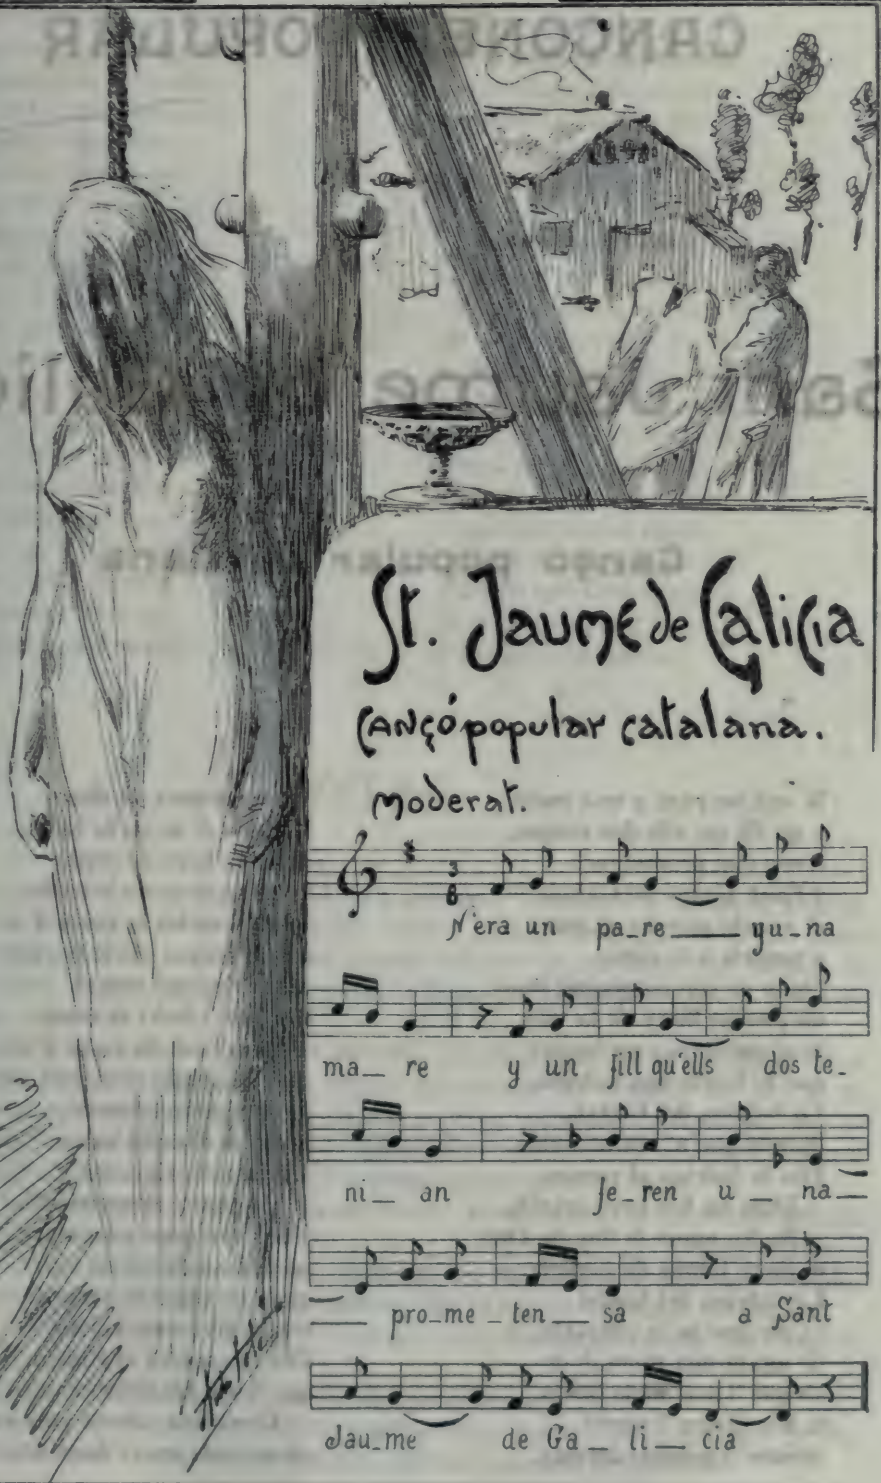 St. Jaume de Galicia
Cançó popular catalana.
moderat.
3
8
N'era un pa_re___ yu_na
ma_ re y un fill qu'ells dos te_
ni_ an fe_ren u_ na_
__ pro_me_ten_ sa a Sant
Jau_me de Ga_ li_ cia